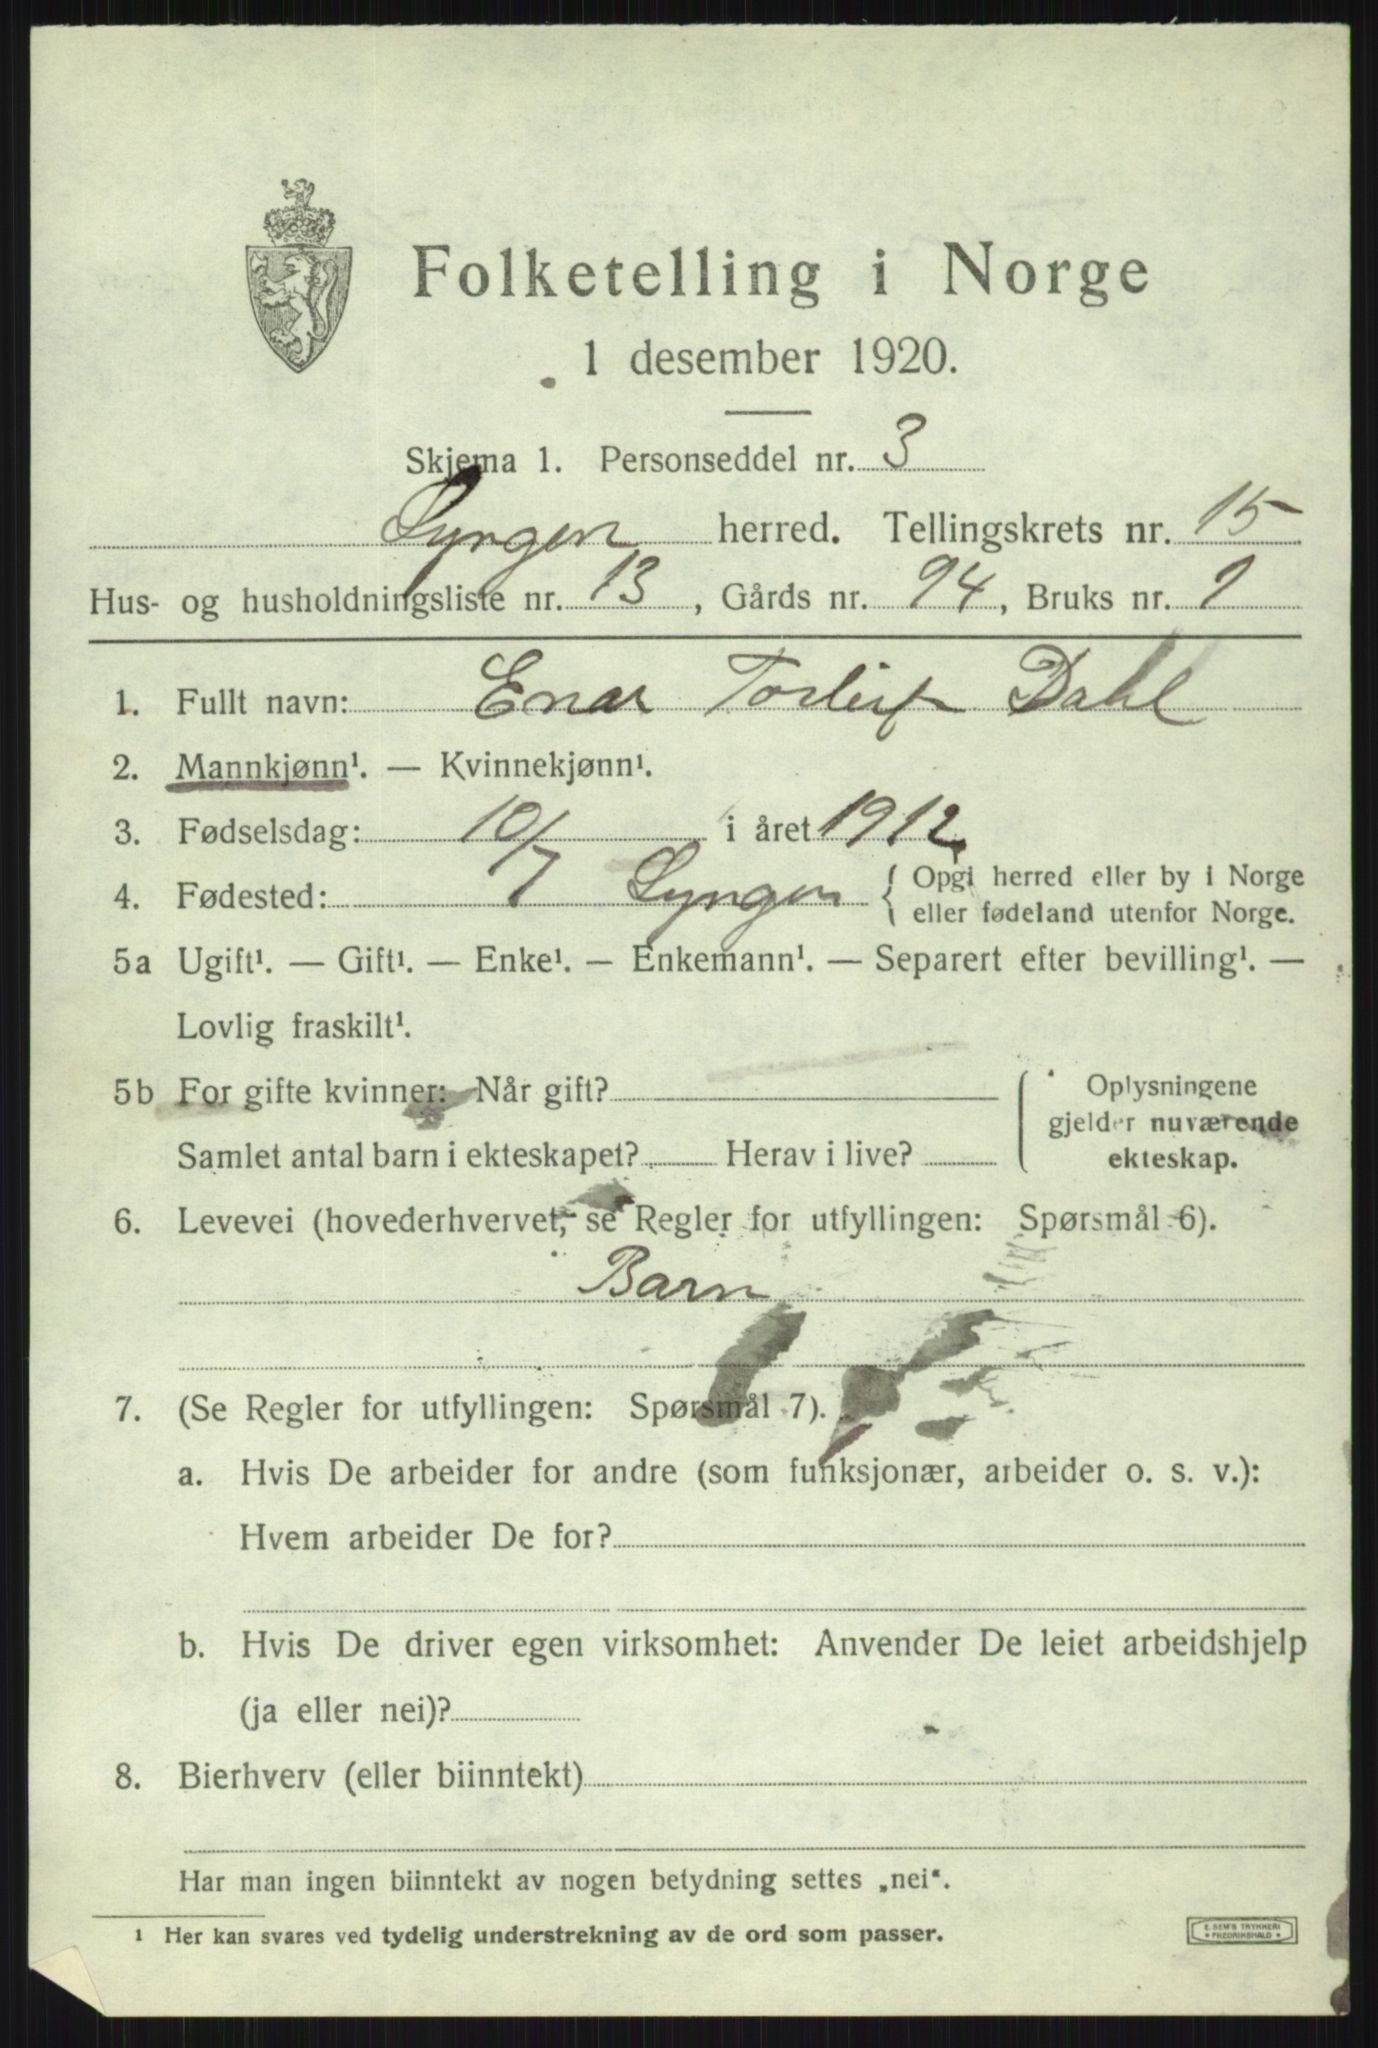 Folketelling i Norge
1 desember 1920.
Skjema 1. Personseddel nr. 3
Lyngen herred. Tellingskrets nr. 15
Hus- og husholdningsliste nr. 13, Gårds nr. 94, Bruks nr. 9
1. Fullt navn: Enar Torleif Dahl
2. Mannkjønn¹. — Kvinnekjønn¹.
3. Fødselsdag: 10/7 i året 1912
4. Fødested: Lyngen { Opgi herred eller by i Norge
eller fødeland utenfor Norge.
5a Ugift¹. — Gift¹. — Enke¹. — Enkemann¹. — Separert efter bevilling¹. —
Lovlig fraskilt¹.
5b For gifte kvinner: Når gift?
Samlet antal barn i ekteskapet? Herav i live?
Oplysningene
gjelder nuværende
ekteskap.
6. Levevei (hovederhvervet, se Regler for utfyllingen: Spørsmål 6).
Barn
7. (Se Regler for utfyllingen: Spørsmål 7).
a. Hvis De arbeider for andre (som funksjonær, arbeider o. s. v.):
Hvem arbeider De for?
b. Hvis De driver egen virksomhet: Anvender De leiet arbeidshjelp
(ja eller nei)?
8. Bierhverv (eller biinntekt)
Har man ingen biinntekt av nogen betydning settes „nei“.
¹ Her kan svares ved tydelig understrekning av de ord som passer.
E. SEM'S TRYKKERI
* FREDRIKSHALD *